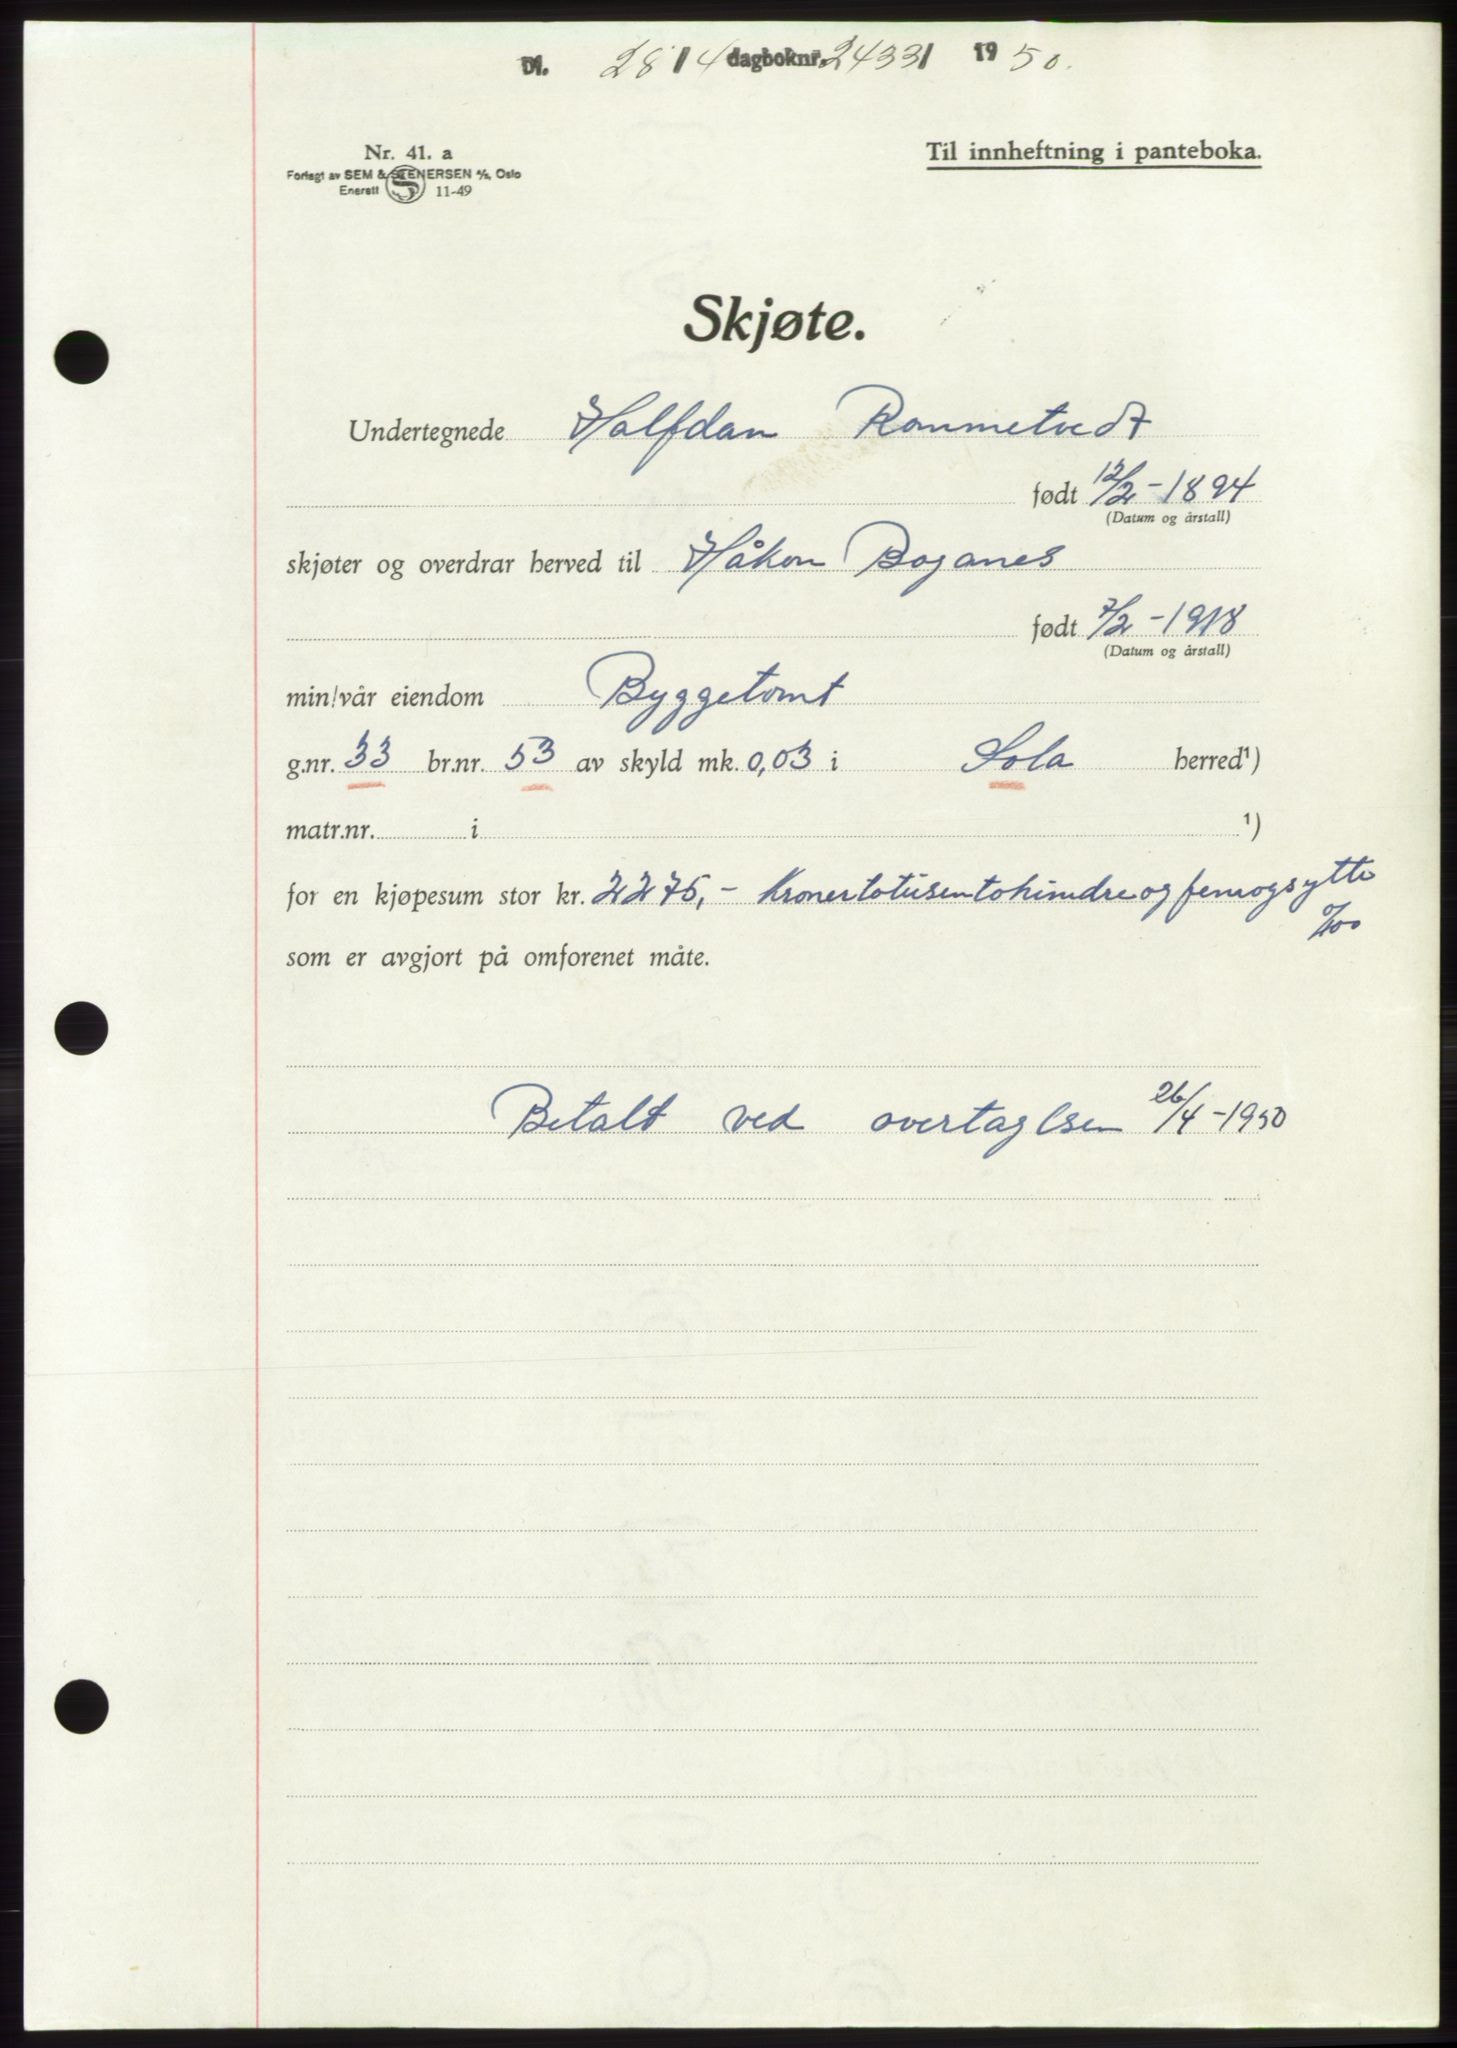 Dl. 28/4 dagboknr. 2433/ 1950.
Nr. 41. a
Til innheftning i panteboka.
Forlagt av SEM & STENERSEN A/S, Oslo
Enerett 11-49
Skjøte.
Undertegnede Halfdan Rommetvedt
født 12/2 - 1894
(Datum og årstall)
skjøter og overdrar herved til Håkon Boganes
født 7/2 - 1918
(Datum og årstall)
min/vår eiendom Byggetomt
g.nr. 33 br.nr. 53 av skyld mk. 0,03 i Sola herred¹)
matr.nr. i ¹)
for en kjøpesum stor kr. 2275,- Kronertotusentohundreogfemogsytte
0/100
som er avgjort på omforenet måte.
Betalt ved overtaglsen 26/4 - 1950